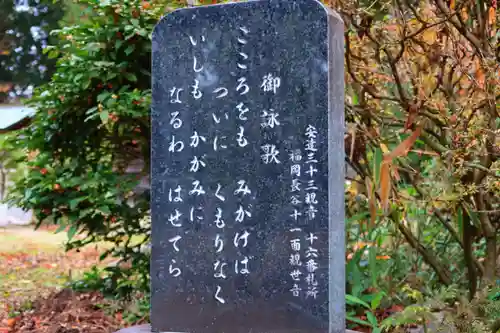 安達三十三観音 十六番札所
福岡長谷十一面観世音
御詠歌
こころをも みがけば
ついに くもりなく
いしも かがみに
なるわ はせでら